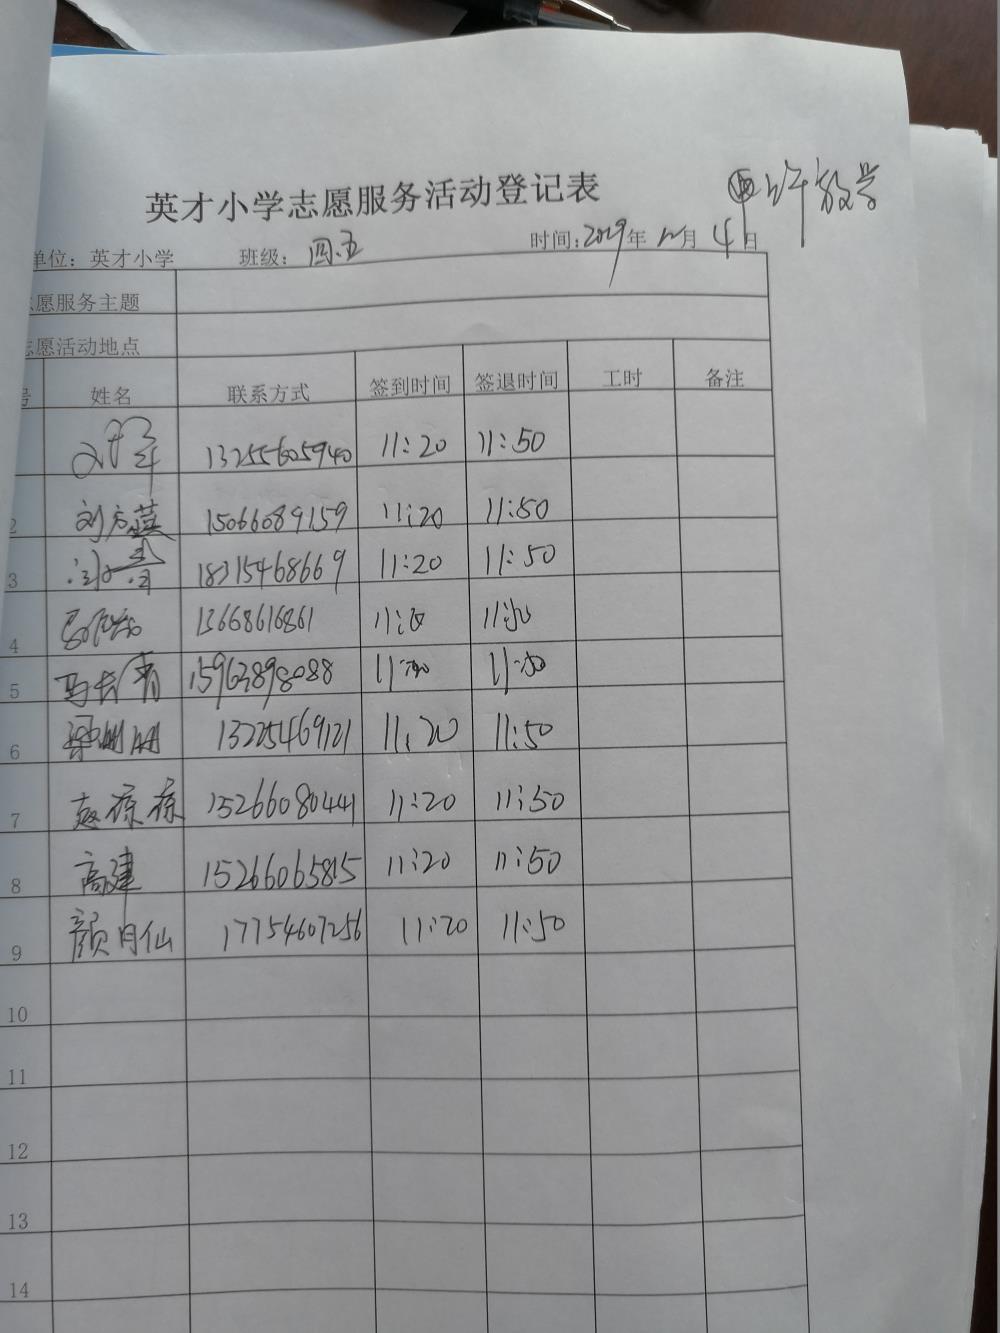 英才小学志愿服务活动登记表
上午放学
单位：英才小学 班级：四.五 时间：2019年12月4日
志愿服务主题
志愿活动地点
号 姓名 联系方式 签到时间 签退时间 工时 备注
13255605940 11:20 11:50
2 刘方英 15066089159 11:20 11:50
3 18315468669 11:20 11:50
4 13668616861 11:20 11:50
5 马长青 15963898088 11:20 11:50
6 13225469121 11:20 11:50
7 赵琼琼 15266080441 11:20 11:50
8 高建 15266065815 11:20 11:50
9 颜月仙 17754607256 11:20 11:50
10
11
12
13
14